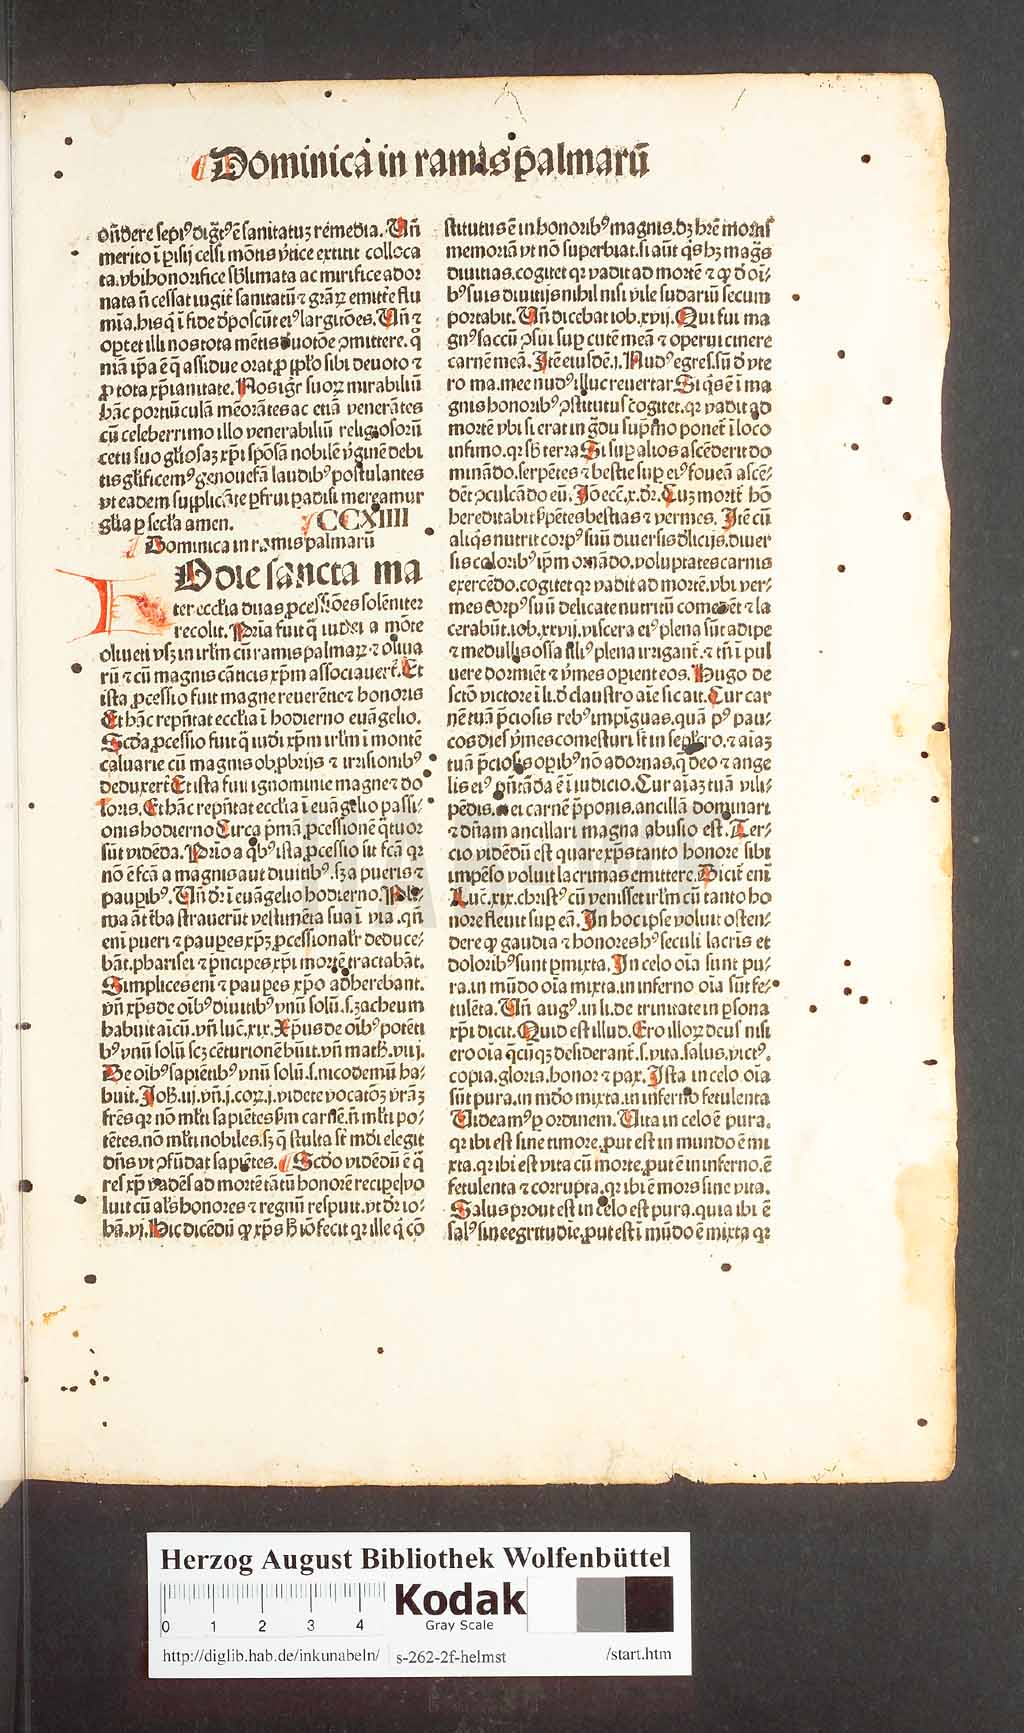 Dominica in ramis palmarū
ondere sepiꝰ digͭꝰ ē sanitatuꝫ remedia. Un̄
merito ī p̄isij celsi mōtis v̄tice extitit colloca
ta. vbi honorifice sblimata ac mirifice ador
nata n̄ cessat iugit̄ sanitatū ⁊ grāꝝ emitte flu
mīa. his q̄ ī fide dꝑoscūt eiꝰ largitōes. Un̄ ⁊
oꝑtet illi nos tota mētis duotōe ꝓmittere. q̄
niā ip̄a ē q̄ assidue orat ꝓ ip̄lo sibi deuoto ⁊
ꝓ tota xp̄ianitate. Nos igr̄ suoꝝ mirabiliū
hāc portiūculā meōrātes ac etiā venerātes
cū celeberrimo illo venerabiliū religiosorū
cetu suo gl̄iosaꝫ xp̄i spōsā nobilē v̄ginē debi
tis glificemꝰ genouefā laudibꝰ postulantes
vt eadem supplicāte ꝑfrui padisi mereamur
gl̄ia ꝑ secl̄a amen.
CCXIIII
Dominica in ramis palmarū
Hodie sancta ma
ter eccl̄ia duas ꝓcessiōes solēniter
recolit. Pria fuit q̄ iudei a mōte
oliueti vsꝫ in irl̄m cū ramis palmaꝝ ⁊ oliua
rū ⁊ cū magnis cāticis xp̄m associauer̄t. Et
ista ꝓcessio fuit magne reuerētie ⁊ honoris
Et hāc rep̄ntat eccl̄ia ī hodierno euāgelio.
Scd̄a ꝓcessio fuit q̄ iudi xp̄m irl̄m ī montē
caluarie cū magnis obꝓbrijs ⁊ irrisionibꝰ
deduxert̄ Et ista fuit ignominie magne ⁊ do
loris. Et hāc rep̄ntat eccl̄ia ī euāgelio passi
onis hodierno Circa p̄mā ꝓcessionē q̄tuor
sūt vidēda. Prīo a qͥbꝰ ista ꝓcessio sit fcā qꝛ
nō ē fcā a magnis aut diuitibꝰ. sꝫ a pueris ⁊
pauꝑibꝰ. Un̄ dr̄ ī euāgelio hodierno. Pl̄i
ma āt t̄ba strauerūt vestimēta sua ī via. qn̄
enī pueri ⁊ pauꝑes xp̄ꝫ ꝓcessionalr̄ deduce-
bāt. pharisei ⁊ p̄ncipes xp̄i mortē tractabāt.
Simplices enī ⁊ pauꝑes xp̄o adherebant.
vn̄ xp̄s de oībꝰ diuitibꝰ vnū solū. s. zacheum
habuit aīcū. vn̄ luc̄. xix. Xp̄us de oībꝰ potēti
bꝰ vnū solū scꝫ cēturionē hūit. vn̄ math̄. viij.
De oībꝰ sapiētibꝰ vnū solū. s. nicodemū ha-
buit. Joh̄. iij. vn̄. j. coꝝ. j. videte vocatōꝫ vrāꝫ
frēs qꝛ nō ml̄ti sapiētes ẜm carnē. n̄ ml̄ti po-
tētes. nō ml̄ti nobiles. sꝫ q̄ stulta sūt mūdi elegit
dn̄s vt ꝯfūdat sapiētes. Scd̄o vidēdū ē q̄
res xp̄s vadēs ad mortē tātū honorē recipe vo
luit cū al̄s honores ⁊ regnū respuit. vt dr̄ io-
hā. vj. Hic dicēdū ꝙ xp̄s h̄ iō fecit qꝛ ille qͥ cō
stitutus ē in honoribꝰ magnis. dꝫ hr̄e mortis
memoriā vt nō superbiat. si aūt qͥs hꝫ magͣs
diuitias. cogitet qꝛ vadit ad mortē ⁊ ꝙ d̄ oī-
bꝰ suis diuitijs nihil nisi vile sudariū secum
portabit. Un̄ dicebat iob. xvij. Qui fui ma
gnꝰ saccū ꝯsui suꝑ cutē meā ⁊ operui cinere
carnē meā. Itē eiusdē. j. Nudꝰ egressū d̄ vte
ro ma. mee nudꝰ illuc reuertar Si qͥs ē ī ma
gnis honoribꝰ ꝯstitutus cogitet. qꝛ vadit ad
mortē vbi si erat in gͣdu supͤmo ponet̄ ī loco
infimo. qꝛ sb̄ terra Si suꝑ alios ascēderit do
minādo. serpētes ⁊ bestie suꝑ eiꝰ foueā ascē-
dēt ꝯculcādo eū. Jō eccī. x. dr̄. Cuꝫ mort̄ hō
hereditabit ẜpētes bestias ⁊ vermes. Itē cū
aliqͥs nutrit corpꝰ suū diuersis d̄licijs. diuer
sis caloribꝰ ip̄m ornādo. voluptates carnis
exercēdo. cogitet qꝛ vadit ad mortē. vbi ver-
mes corpꝰ suū delicate nutritū comedēt ⁊ la
cerabūt. iob. xxvij. viscera eiꝰ plena sūt adipe
⁊ medullis ossa illiꝰ plena irrigant̄. ⁊ tn̄ ī pul
uere dormiēt ⁊ v̄mes oꝑient eos. Hugo de
sctō victore ī li. d̄ claustro aīe sic ait. Cur car
nē tuā p̄ciosis rebꝰ impīguas. quā pꝰ pau-
cos dies v̄mes comesturi sūt in sepulcro. ⁊ aīaꝫ
tuā p̄ciosis oꝑibꝰ nō adornas. q̄ deo ⁊ ange
lis eiꝰ p̄ntāda ē ī iudicio. Cur aīaꝫ tuā vili-
pēdis. ⁊ ei carnē p̄ponis. ancillā dominari
⁊ dn̄am ancillari magna abusio est. Ter-
cio vidēdū est quare xp̄s tanto honore sibi
impēso voluit lacrimas emittere. Dicit̄ enī
Luc̄. xix. christꝰ cū venisset irl̄m cū tanto ho
nore fleuit suꝑ eā. In hoc ipse voluit osten-
dere ꝙ gaudia ⁊ honores hꝰ seculi lacris et
doloribꝰ sunt ꝑmixta. In celo oīa sunt pu-
ra. in mūdo oīa mixta. in inferno oīa sūt fe-
tulēta. Un̄ augꝰ. in li. de trinitate in ꝑsona
xp̄i dicit. Quid est illud. Ero illoꝝ deus nisi
ero oīa q̄cūqꝫ desiderant̄. s. vita. salus. victꝰ.
copia. gloria. honor ⁊ pax. Ista in celo oīa
sūt pura. in mūdo mixta. in inferno fetulenta
Uideamꝰ ꝑ ordinem. Uita in celo ē pura.
qꝛ ibi est sine timore. ꝓut est in mundo ē mi
xta. qꝛ ibi est vita cū morte. ꝓut ē in inferno. ē
fetulenta ⁊ corrupta. qꝛ ibi ē mors sine vita.
Salus prout est in celo est pura. quia ibi ē
salꝰ sine egritudīe. ꝓut est ī mūdo ē mixta qꝛ
Herzog August Bibliothek Wolfenbüttel
0 1 2 3 4
Kodak
Gray Scale
http://diglib.hab.de/inkunabeln/ s-262-2f-helmst /start.htm